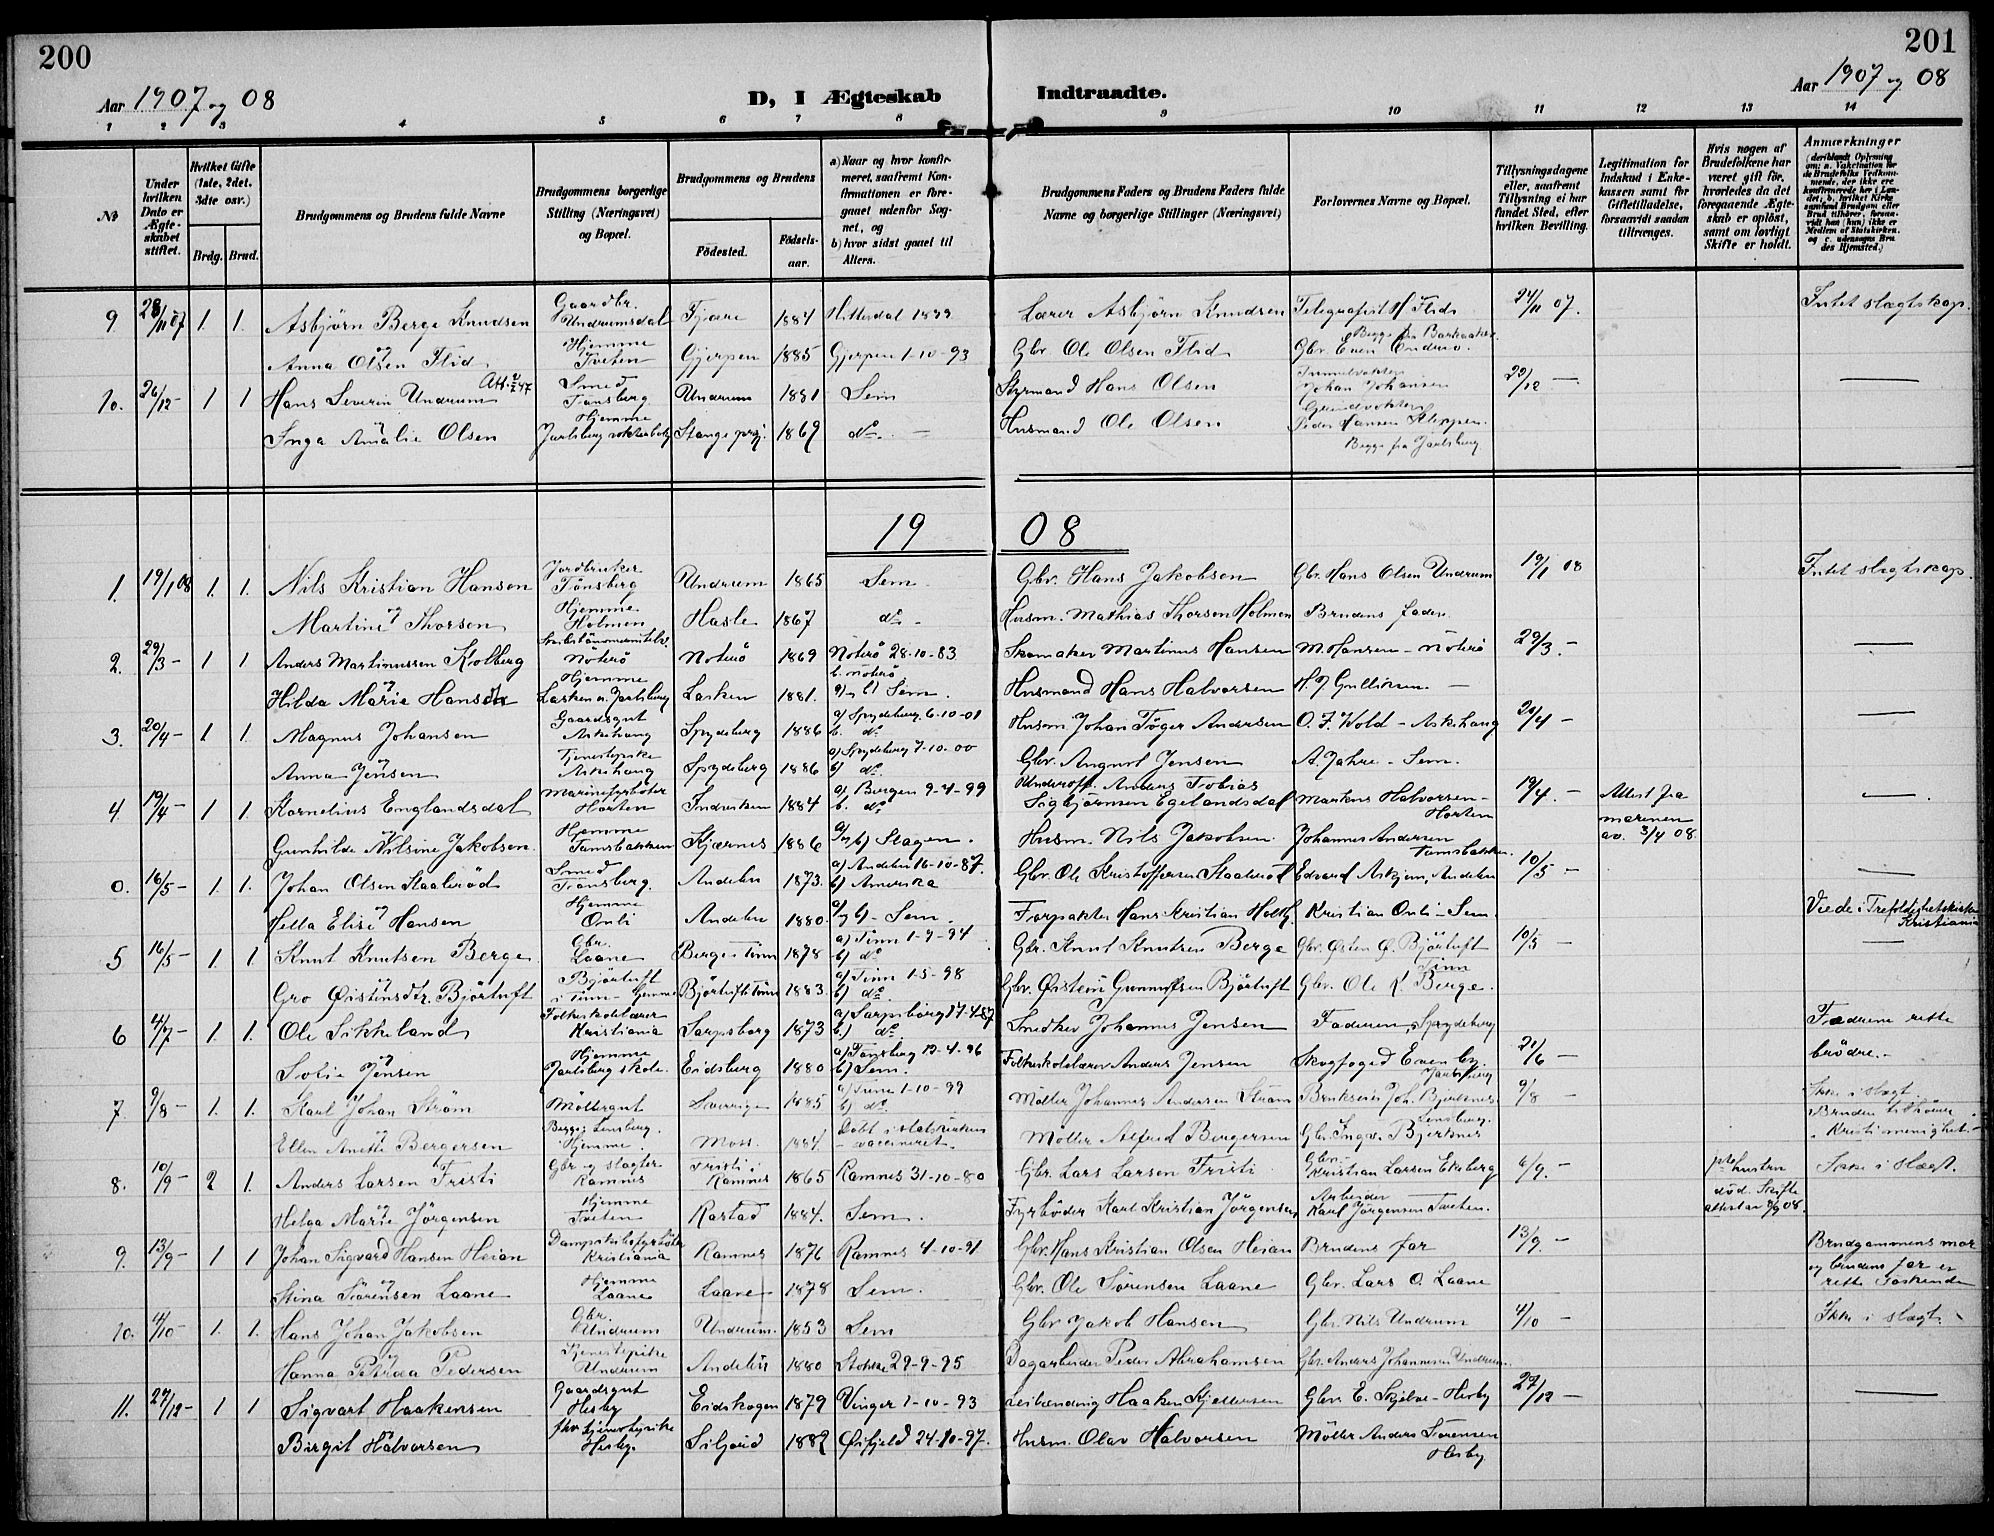 200
201
Aar 1907 og 08
D, I Ægteskab Indtraadte.
Aar 1907 og 08
1 2 3 4 5 6 7 8 9 10 11 12 13 14
No
Under hvilken Dato er Ægteskabet stiftet.
Hvilket Gifte (1ste, 2det, 3dte osv.)
Brdg. Brud.
Brudgommens og Brudens fulde Navne
Brudgommens borgerlige Stilling (Næringsvei) og Bopæl.
Brudgommens og Brudens
Fødested.
Fødselsaar.
a) Naar og hvor konfirmeret, saafremt Konfirmationen er foregaaet udenfor Sognet, og
b) hvor sidst gaaet til Alters.
Brudgommens Faders og Brudens Faders fulde Navne og borgerlige Stillinger (Næringsvei)
Forlovernes Navne og Bopæl.
Tillysningsdagene eller, saafremt Tillysning ei har fundet Sted, efter hvilken Bevilling.
Legitimation for Indskud i Enkekassen samt for Giftetilladelse, forsaavidt saadan tiltrænges.
Hvis nogen af Brudefolkene har været gift før, hvorledes da det foregaaende Ægteskab er opløst, samt om lovligt Skifte er holdt.
Anmærkninger
9. 28/11 07 1. 1. Asbjörn Berge Knudsen Gaardbr. Undrumsdal Fjære 1884 Hitterdal 1899 Lærer Asbjörn Knudsen Telegrafist H Flid 24/11 07. Intet slægtskap.
og Anna Olsen Flid Hjemme Tveten Gjerpen 1885 Gjerpen 1-10-93 Gbr. Ole Olsen Flid Gbr. Even Endresö. Begge fra Barkaaker
10. 26/12- 1 1 Hans Severin Undrum Att. Smed Tønsberg Undrum 1881 Sem Styrmand Hans Olsen Johan Johansen 29/12 —
Inga Amalie Olsen Hjemme Jarlsberg Stange prj. 1869 do. — Husmand Ole Olsen Grindvokter Peder Hansen Kleppen. Begge fra Jarlsberg
1908
1. 19/1 08 1. 1. Nils Kristian Hansen Jordbruker Tönsberg Undrum 1865 Sem Gbr. Hans Jakobsen Gbr. Hans Olsen Undrum 19/1 08 Intet slegtskap.
og Martine Thorsen Hjemme Holmen Hasle 1867 do - Husm. Mathias Thorsen Holmen Brudens fader
2. 29/3- 1 1 Anders Martinussen Kolberg Nöterö Nöterö 1869 Nöterö 28-10-83 b. Nöterö Skomaker Martinus Hansen M Hansen - Nöterö 29/3. - —
og Hilda Marie Hansdtr Hjemme Lasken v. Jarlsberg Lasken 1881. a) og b) Sem. Husmand Hans Halvorsen H. J Gulliksen. —
3. 20/4- 1 1. Magnus Johansen Gaardsgut Askehaug Spydeberg 1886 a) Spydeberg 6-10-01 b. do Husm. Johan Töger Andersen O. F. Wold - Askehaug 20/4 - —
og Anna Jensen Tjenestepike Askehaug Spydeberg 1886 a) Spydeberg 7-10-00 b) do. Gbr. August Jensen A. Jahre - Sem.
4 19/4- 1 1. Kornelius Englandsdal Marinefyrböter Horten Indviken 1884 a) Bergen 9-4-99 b. do Underoff. Anders Tobias Sigbjörnsen Egelandsdal Markus Halvorsen - Horten 19/4. - Attest fra marinen av. 3/4 08 —
Gunhilde Nilsine Jakobsen. Hjemme Tamsbakken Kjærnes 1886 a) og b) Slagen. Husm. Nils Jakobsen. Johannes Andersen Tamsbakken
0. 16/5- 1. 1. Johan Olsen Staalerød Smed Tönsberg. Andebu 1873. a) Andebu 16-10-87 b) Amerika Gbr. Ole Kristoffersen Staaleröd Edvard Askjem, Andebu 10/5 - —
og Hella Elise Hansen Hjemme Onli Andebu 1880. a) og b) - Sem. Forpakter Hans Kristian Holth. Kristian Onli - Sem. Viede i Trefoldighetskirken Kristiania
5 16/5- 1. 1. Knut Knutsen Berge Gbr. Laane Berge i Tinn 1878 a) Tinn 1-7-94 b) do Gbr. Knut Knutsen Berge Gbr. Östen Ö. Björtuft Tinn 10/5 - —
og Gro Øistinsdtr. Björtuft Björtuft i Tinn - Hjemme Björtuft i Tinn 1883 a) Tinn 1-5-98 b) do. Gbr. Øistein Gunnulfsen Björtuft Gbr. Ole K. Berge.
6 4/7- 1 1 Ole Sikkeland Folkeskolelærer Kristiania Sarpsborg 1873 a) Sarpsborg 17-4-87 b) do. Smedker Johannes Jensen Faderen, Spydeberg 21/6 - Fædrene rette brödre. -
og Sofie Jensen Hjemme Jarlsberg skole. Eidsberg 1880 a) Tönsberg 19-4-96 b) Sem. Folkeskolelærer Anders Jensen Skogfoged Evenby, Jarlsberg
7. 9/8- 1. 1. Karl Johan Ström Möllergut Sverrige 1885 a) Tune 1-10-99 b) do Möller Johannes Andersen Ström Brukseier Joh. Bjerknes 9/8 - Ikke i slægt. Bruden tilhörer Kristi menighet. -
Ellen Anette Bergersen Begge: Lensberg. Hjemme. Moss. 1884. Döbt i statskirken - vaccineret. - Möller Alfred Bergersen Gbr. Ingv. Bjerknes Lensberg.
8. 10/9- 2 1. Anders Larsen Tristi Gbr og slagter Ramnes Tristi i Ramnes 1865 Ramnes 31-10-80 Gbr. Lars Larsen Tristi Gbr. Kristian Larsen Ekeberg 6/9. - hustru död. Skifteattest av 9/9 08. Ikke i slægt.
og Helga Marie Jörgensen Hjemme Tveten Rastad 1884. Sem. Fyrböder Karl Kristian Jörgensen Arbeider Karl Jörgensen Tveten.
9. 13/9- 1 1 Johan Sigvard Hansen Heian Kristiania Ramnes 1876 Ramnes 4-10-91 Gbr. Hans Kristian Olsen Heian Brudens far 13/9 - Brudgommens mor og brudens far er rette söskende
og Stina Sörensen Laane Hjemme Laane Laane 1878 Sem. Gbr. Ole Sörensen Laane Gbr. Lars O. Laane
10. 4/10- 1. 1. Hans Johan Jakobsen Gbr. Undrum Undrum. 1853 Sem Gbr Jakob Hansen Gbr. Nils Undrum 4/10 - Ikke i slægt. -
og Hanna Petrea Pedersen Tjenestepike Undrum Andebu 1880 Stokke 29-9-95 Dagarbeider Peder Abrahamsen Gbr. Anders Johannesen Undrum.
11. 27/12- 1 1 Sigvart Haakensen Gaardsgut Hesby Eidskogen 1879 Vinger 1-10-93 Leilending Haaken Kjeldersen Gbr. E. Skjelve - Hesby 27/12 - —
Birgit Halvorsen Hesby. Siljord 1882 Øifjeld 24-10-97. Husm. Olav Halvorsen Möller Anders Sörensen Hesby